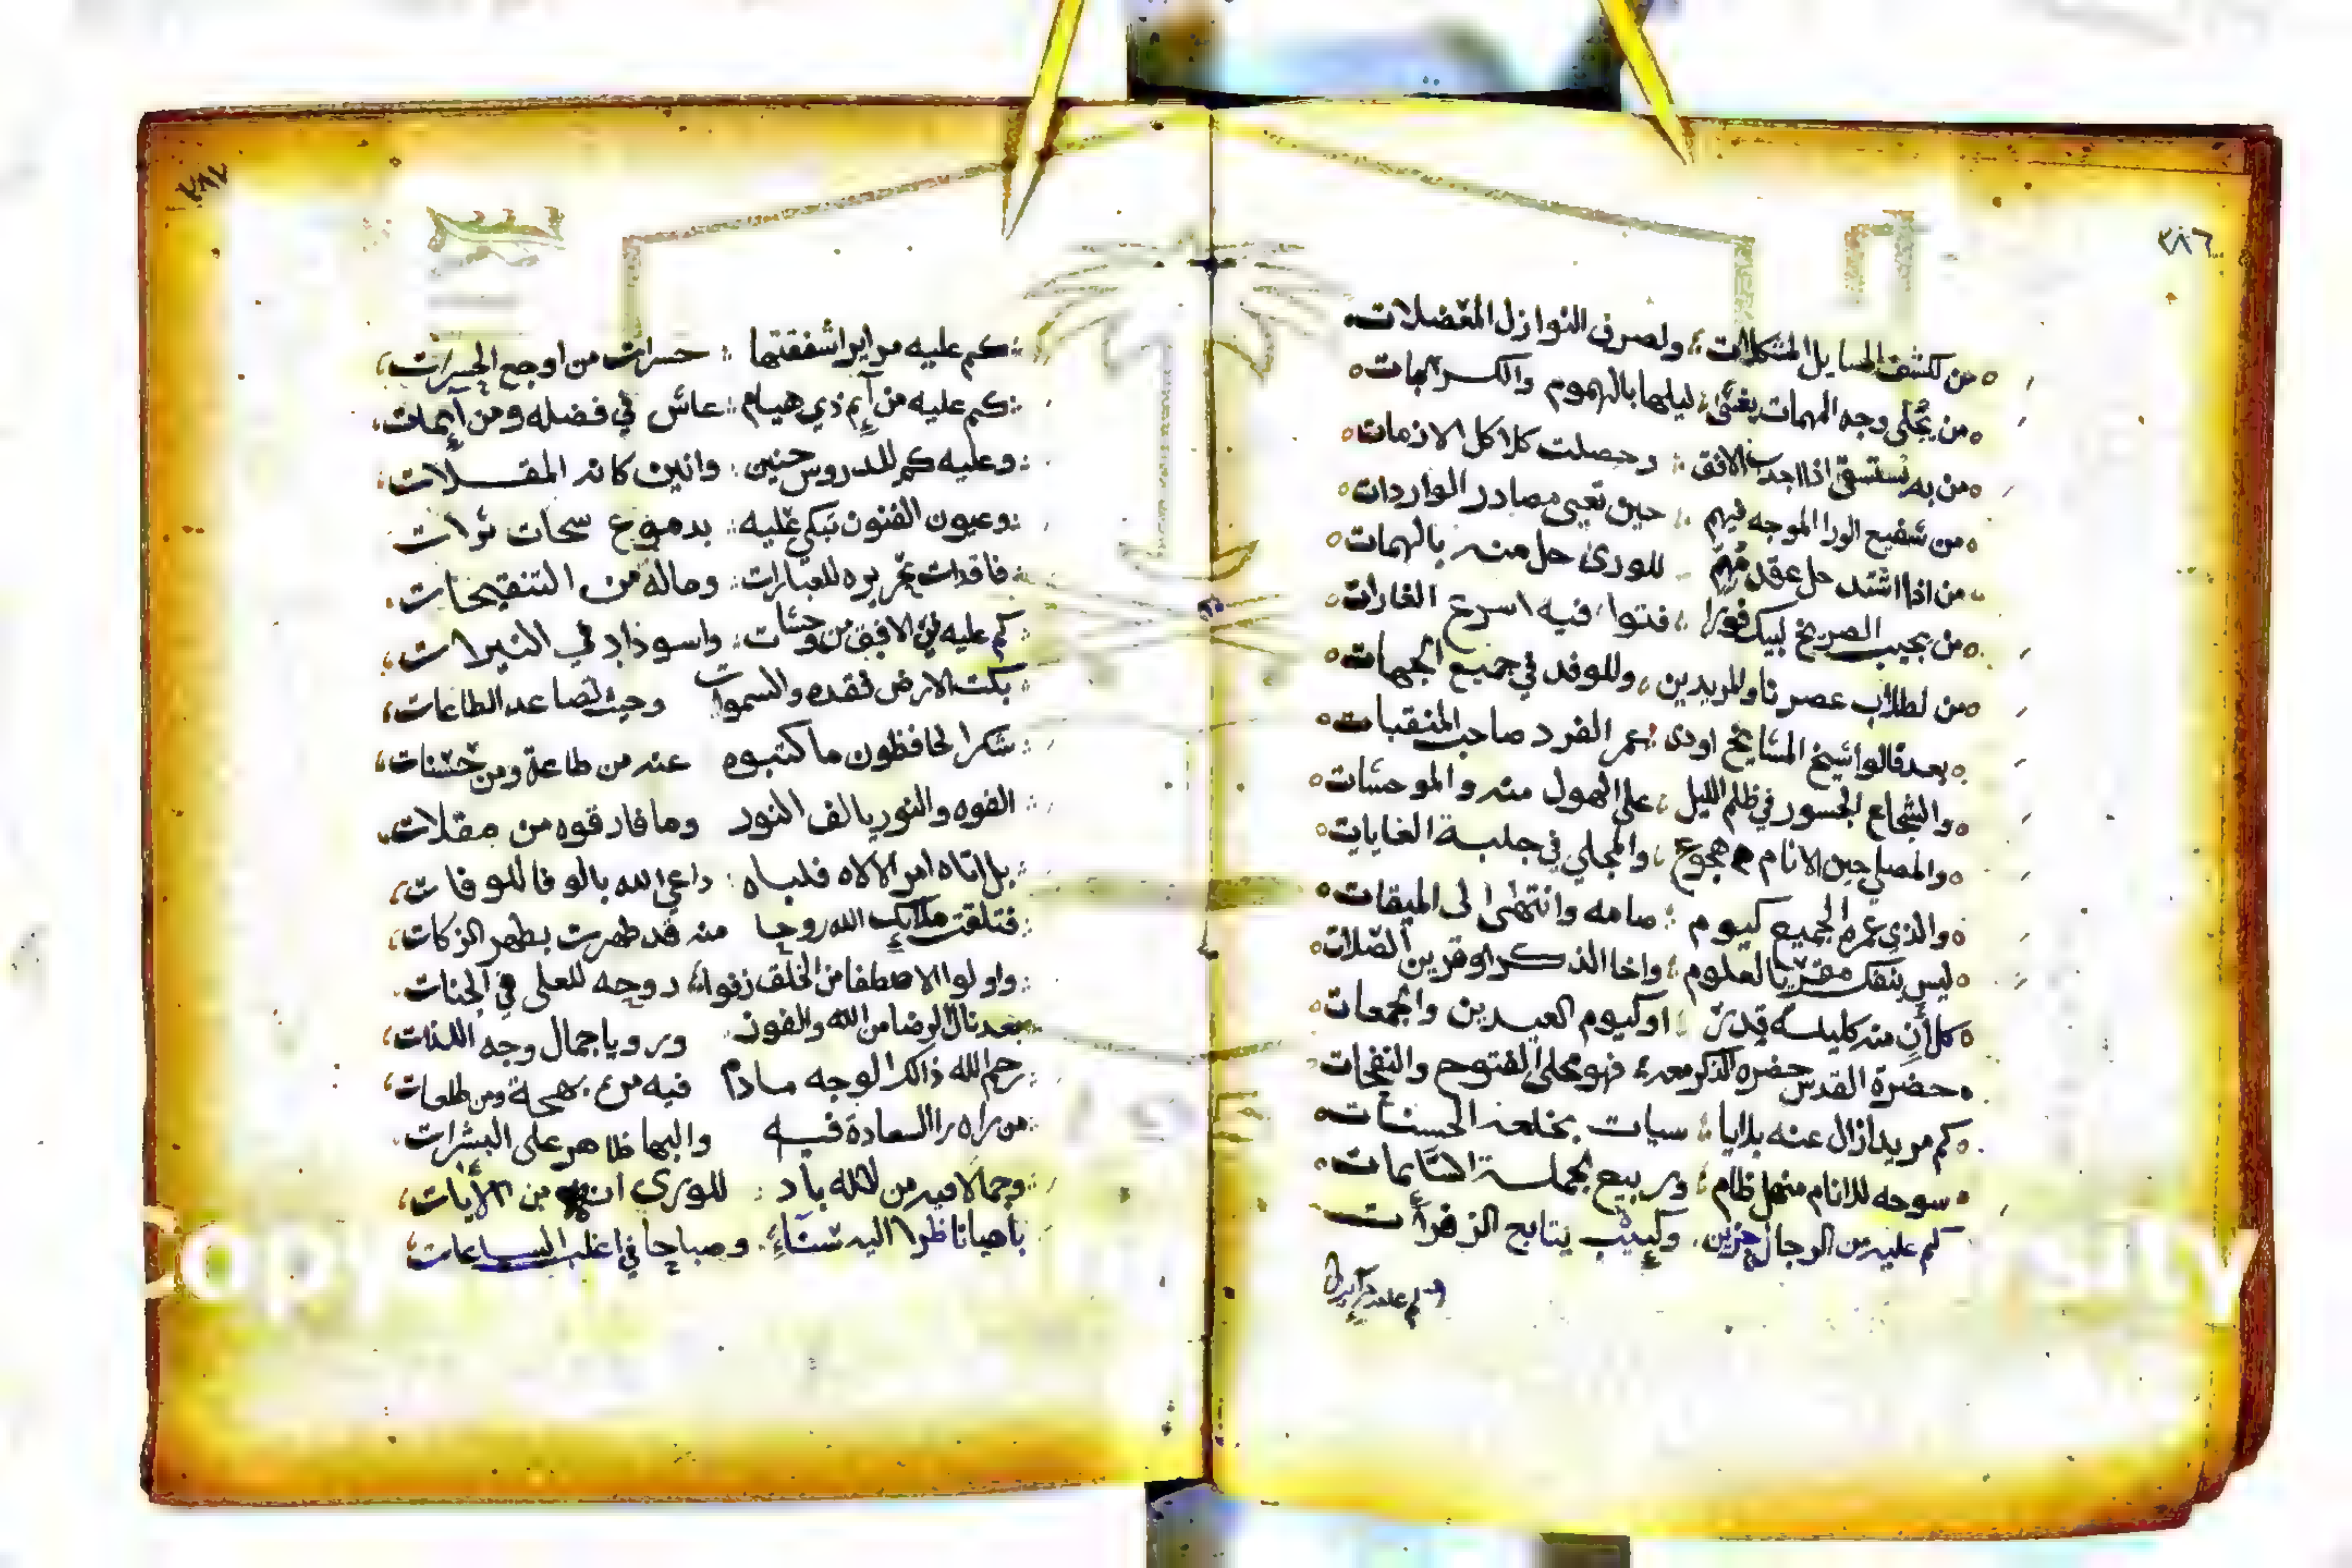 ٢٨٦
من لكشف المسايل المشكلات ولصرف النوازل المعضلات
من يجلي وجه المهمات يغشى ليلها بالهموم والكربات
من به نستسقى اذا اجدب الافق وحصلت كلاكل الازمات
من شفيع الورا الموجه فيهم حين تعيى مصادر الواردات
من اذا اشتد حل عقد مهم للورى حل منه بالهمات
من يجيب الصريخ لبيك فورا فتوا فيه اسرع الغارات
من لطلاب عصرنا والمريدين وللوفد في جميع الجهات
بعد قالوا شيخ المشايخ اودى عمر الفرد صاحب المنقبات
والشجاع الجسور في ظلم الليل على الهول منه والموحشات
والمصلي حين الانام هجوع والمجلي في جلبة الغايات
والذي عمره الجميع كيوم صامه وانتهى الى الميقات
ليس ينفك مقريا لعلوم واخا الذكر او قرين الصلات
كل آن منه كليلة قدر او كيوم العيدين والجمعات
حضرة القدس حضره الذكر معه فهو مجلى الفتوح والنفحات
كم مريد ازال عنه بلايا سيات بخلعه الحسنات
سوحه للانام منهل ظام وربيع لجملة السايمات
كم عليه من الرجال حزين وكييب يتابع الزفرات
كم عليه
٢٨٧
كم عليه مراير اشفقتها حسرات من اوجع الحسرات
كم عليه من آيم ذي هيام عاش في فضله ومن آيمات
وعليه كم للدروس حنين وانين كانه المقلات
وعيون الفنون تبكي عليه بدموع سحات ثرات
فاقدات تحريره للعبارات وماله من التنقيحات
كم عليه في الافق من وحشات واسوذاد في النيرات
بكت الارض فقده والسموات وحيث تصاعد الطاعات
شكرا لحافظون ما كتبوه عنه من طاعة ومن حسنات
الفوه والنور يالف النور وما فارقوه من مقلات
بل اتاه امر الالاه فلباه داعي الله بالوفا للوفات
فتلقت ملايك الله روحا منه قد طهرت بطهر الزكات
واولوا الاصطفا من الخلق زفوا روحه للعلى في الجنات
بعد نال الرضا من الله والفوز ورويا جمال وجه الذات
رحم الله ذاك الوجه ما دام فيه من بهجة ومن طلعات
من راه را السعادة فيه والبها ظاهر على البشرات
وجمالا فيه من الله باد للورى انه من الآيات
يا صبانا ظرا اليه شتاء وصباحا في اغلب الساعات